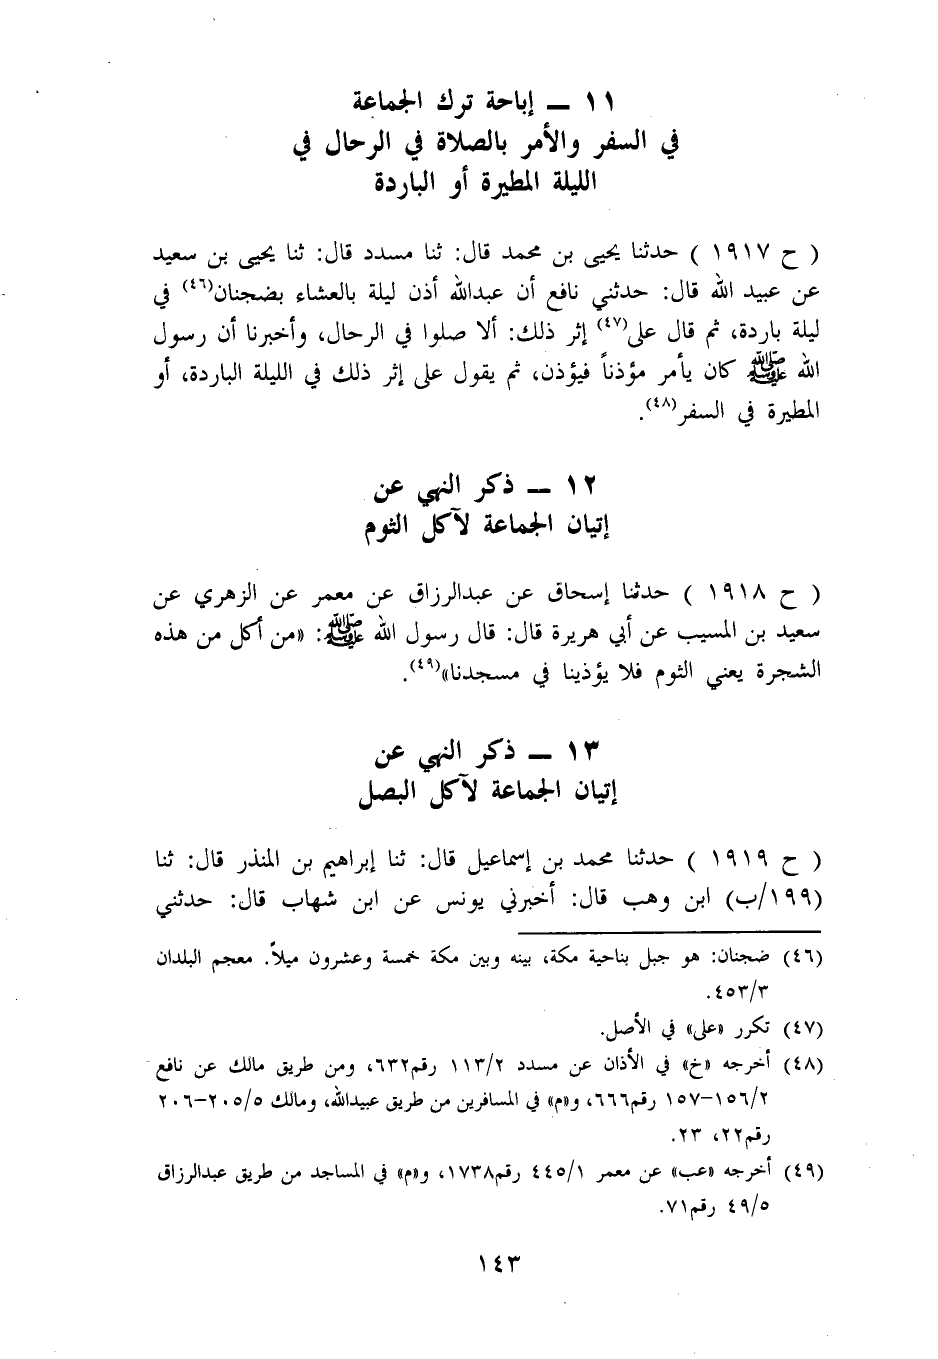 ١١ ــ إباحة ترك الجماعة
في السفر والأمر بالصلاة في الرحال في
الليلة المطيرة أو الباردة
( ح ١٩١٧ ) حدثنا يحيى بن محمد قال: ثنا مسدد قال: ثنا يحيى بن سعيد
عن عبيد الله قال: حدثني نافع أن عبدالله أذن ليلة بالعشاء بضجنان(٤٦) في
ليلة باردة، ثم قال على(٤٧) إثر ذلك: ألا صلوا في الرحال، وأخبرنا أن رسول
الله ﷺ كان يأمر مؤذناً فيؤذن، ثم يقول على إثر ذلك في الليلة الباردة، أو
المطيرة في السفر(٤٨).
١٢ ــ ذكر النهي عن
إتيان الجماعة لآكل الثوم
( ح ١٩١٨ ) حدثنا إسحاق عن عبدالرزاق عن معمر عن الزهري عن
سعيد بن المسيب عن أبي هريرة قال: قال رسول الله ﷺ: «من أكل من هذه
الشجرة يعني الثوم فلا يؤذينا في مسجدنا»(٤٩).
١٣ ــ ذكر النهي عن
إتيان الجماعة لآكل البصل
( ح ١٩١٩ ) حدثنا محمد بن إسماعيل قال: ثنا إبراهيم بن المنذر قال: ثنا
(١٩٩/ب) ابن وهب قال: أخبرني يونس عن ابن شهاب قال: حدثني
(٤٦) ضجنان: هو جبل بناحية مكة، بينه وبين مكة خمسة وعشرون ميلاً. معجم البلدان
٤٥٣/٣.
(٤٧) تكرر «على» في الأصل.
(٤٨) أخرجه «خ» في الأذان عن مسدد ١١٣/٢ رقم٦٣٢، ومن طريق مالك عن نافع
١٥٦/٢–١٥٧ رقم٦٦٦، و«م» في المسافرين من طريق عبيدالله، ومالك ٢٠٥/٥–٢٠٦
رقم٢٢، ٢٣.
(٤٩) أخرجه «عب» عن معمر ٤٤٥/١ رقم١٧٣٨، و«م» في المساجد من طريق عبدالرزاق
٤٩/٥ رقم٧١.
١٤٣